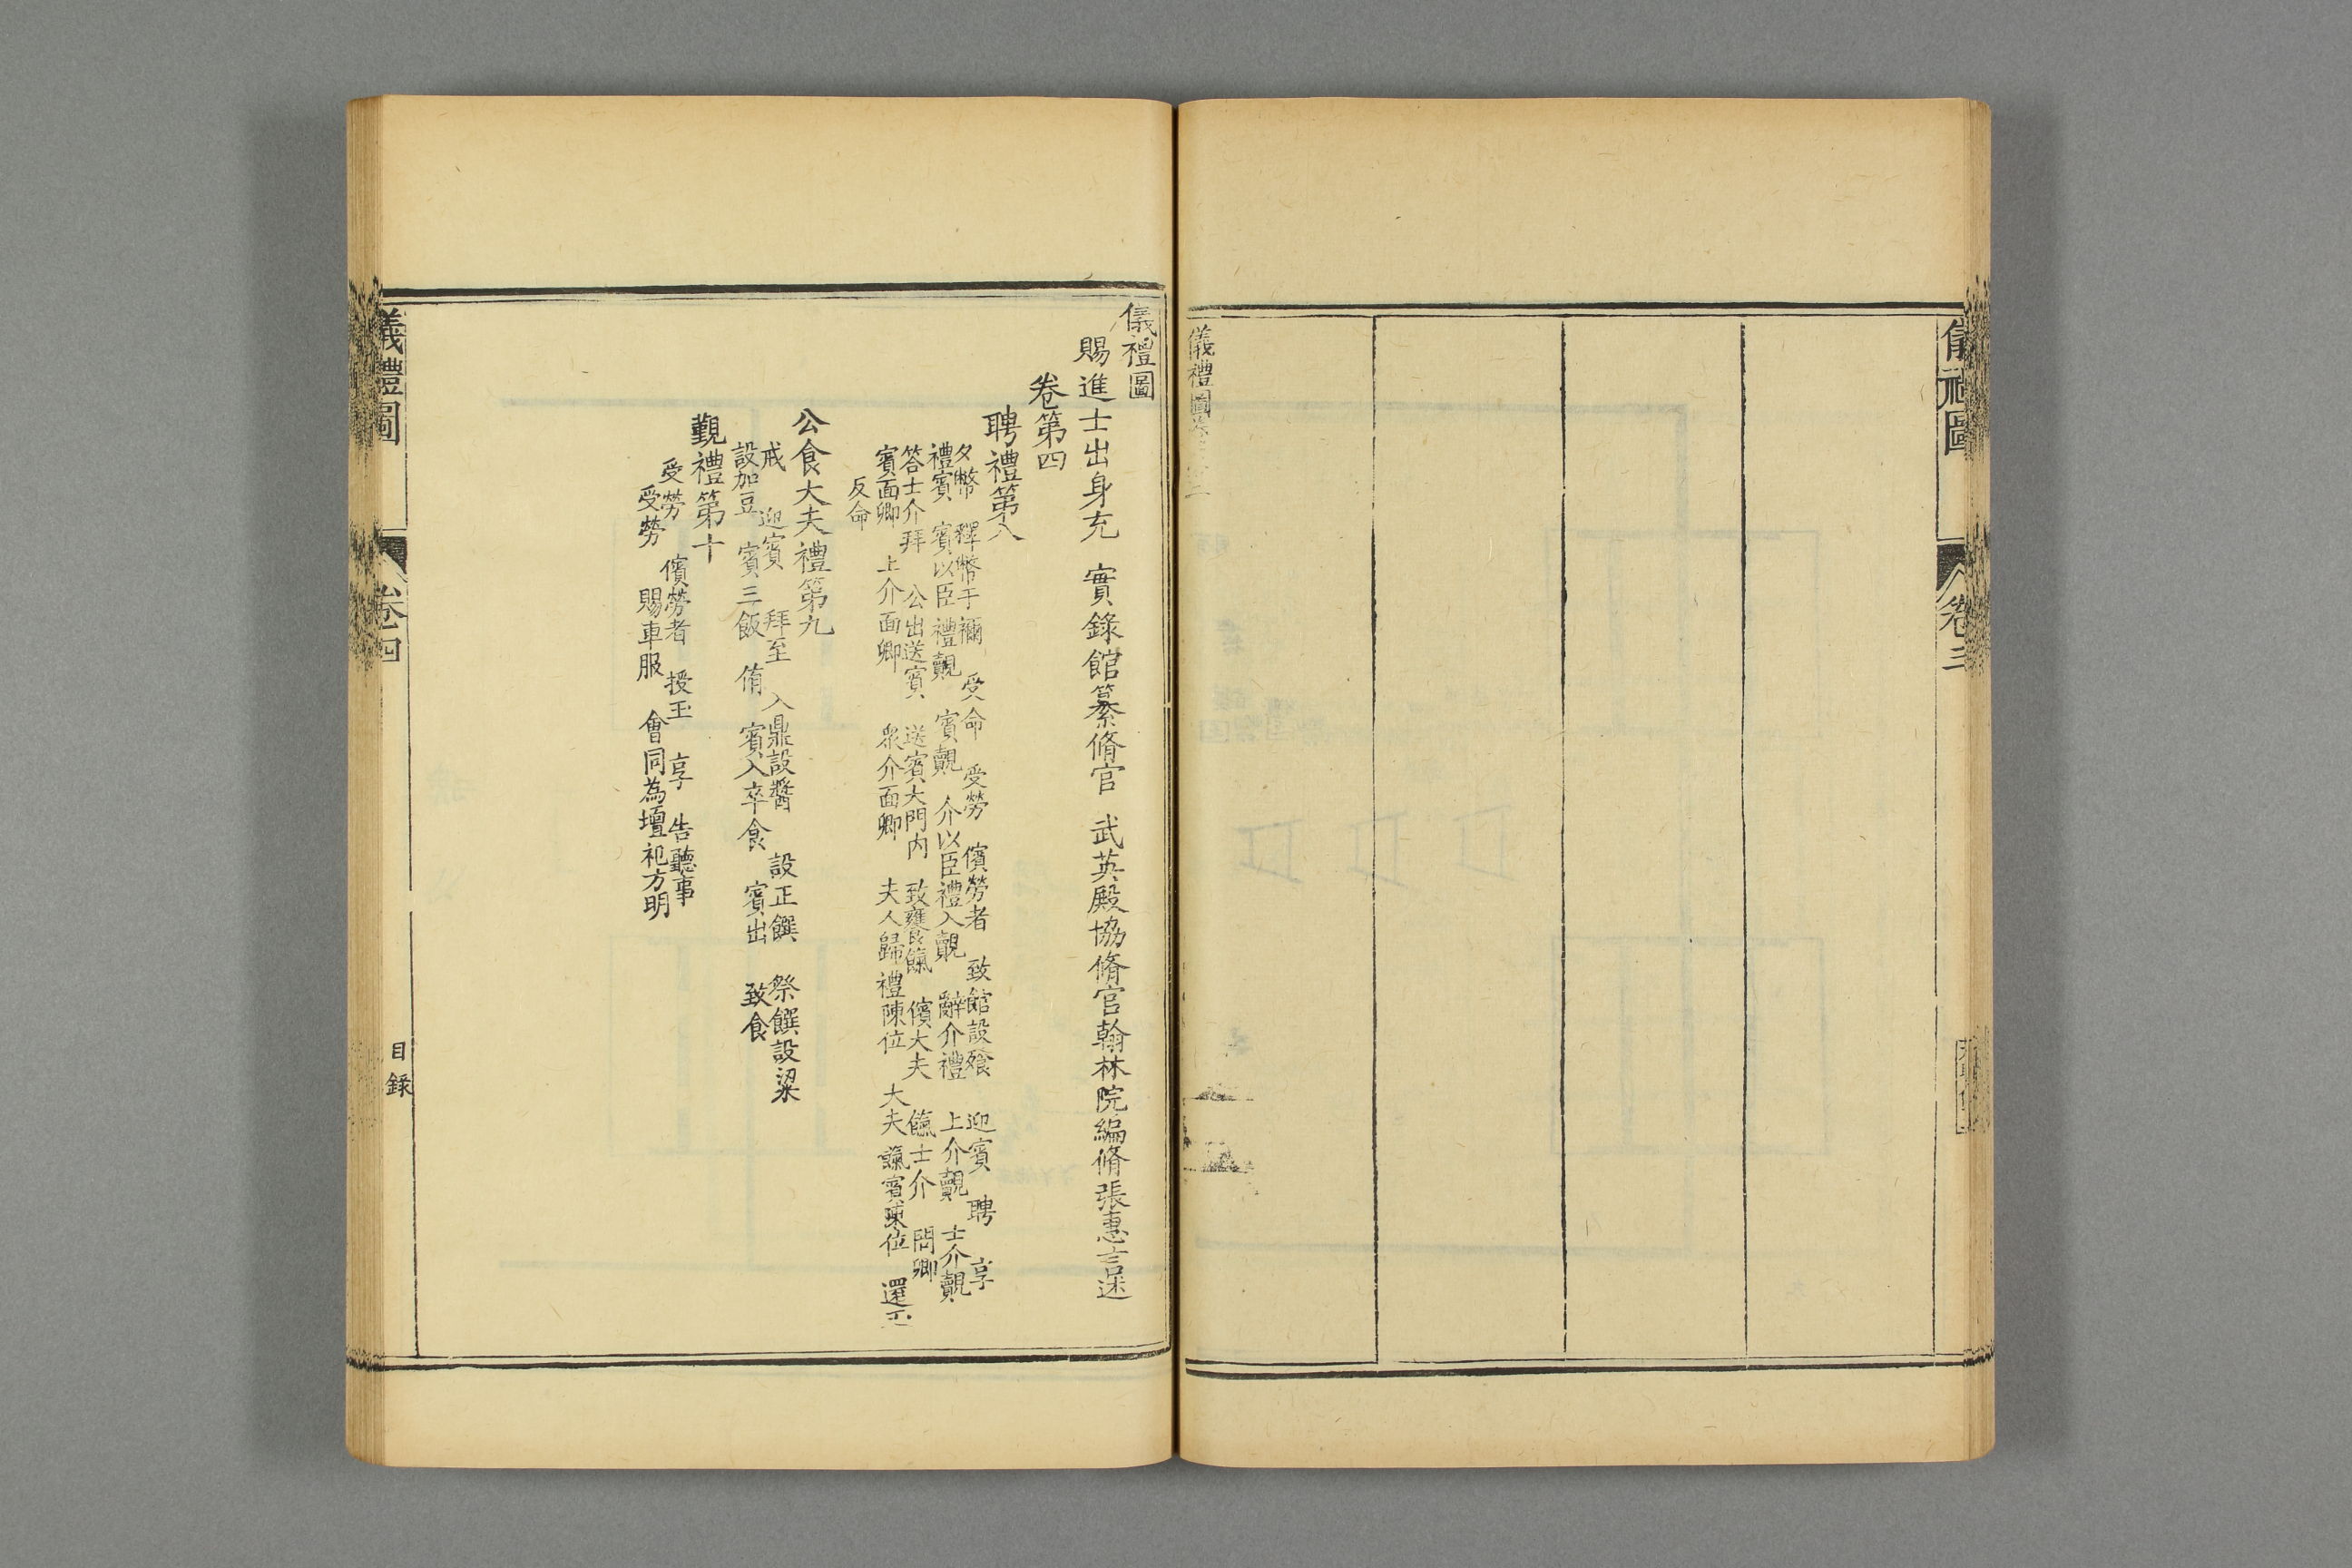 儀禮圖
卷三
儀禮圖
儀禮圖
賜進士出身充 實錄館纂脩官 武英殿協脩官翰林院編脩張惠言述
卷第四
聘禮第八
夕幣 釋幣于禰 受命 受勞 儐勞者 致館設飧 迎賓 聘 享
禮賓 賓以臣禮覿 賓覿 介以臣禮入覿 辭介禮 上介覿 士介覿
答士介拜 公出送賓 送賓大門內 致饔餼 儐大夫 餼士介 問卿
賓面卿 上介面卿 衆介面卿 夫人歸禮陳位 大夫餼賓陳位 還玉
反命
公食大夫禮第九
戒 迎賓 拜至 入鼎設醬 設正饌 祭饌設粱
設加豆 賓三飯 侑 賓入卒食 賓出 致食
覲禮第十
受勞 儐勞者 授玉 享 告聽事
受勞 賜車服 會同為壇祀方明
儀禮圖
卷四
目錄